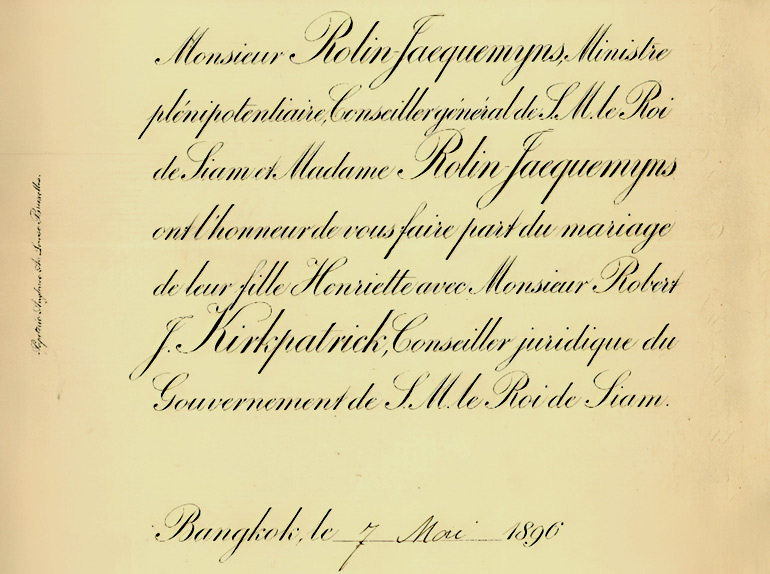 Monsieur Rolin-Jaequemyns, Ministre
plénipotentiaire, Conseiller général de S. M. le Roi
de Siam et Madame Rolin-Jaequemyns
ont l'honneur de vous faire part du mariage
de leur fille Henriette avec Monsieur Robert
J. Kirkpatrick, Conseiller juridique du
Gouvernement de S. M. le Roi de Siam.
Bangkok, le 7 Mai 1896
Louise Bruxelles.